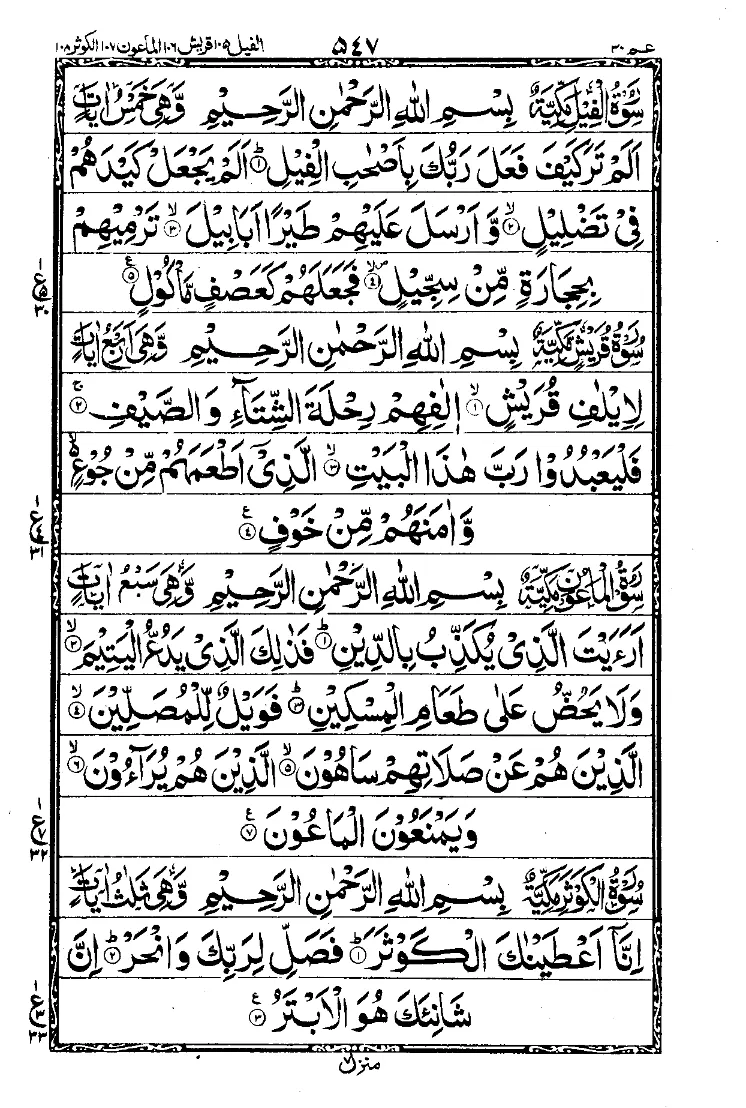 عم ٣٠ ٥٤٧ الفيل ١٠٥ قريش ١٠٦ الماعون ١٠٧ الكوثر ١٠٨
سُوْرَةُ الْفِيْلِ مَكِّيَّةٌ بِسْمِ اللهِ الرَّحْمٰنِ الرَّحِيْمِ وَّهِيَ خَمْسُ اٰيَاتٍ
اَلَمْ تَرَ كَيْفَ فَعَلَ رَبُّكَ بِاَصْحٰبِ الْفِيْلِ ؕ﴿۱﴾ اَلَمْ يَجْعَلْ كَيْدَهُمْ
فِيْ تَضْلِيْلٍ ۙ﴿۲﴾ وَّ اَرْسَلَ عَلَيْهِمْ طَيْرًا اَبَابِيْلَ ۙ﴿۳﴾ تَرْمِيْهِمْ
بِحِجَارَةٍ مِّنْ سِجِّيْلٍ ۙ﴿۴﴾ فَجَعَلَهُمْ كَعَصْفٍ مَّاْكُوْلٍ ﴿۵﴾ ع
سُوْرَةُ قُرَيْشٍ مَكِّيَّةٌ بِسْمِ اللهِ الرَّحْمٰنِ الرَّحِيْمِ وَّهِيَ اَرْبَعُ اٰيَاتٍ
لِاِيْلٰفِ قُرَيْشٍ ۙ﴿۱﴾ اٖلٰفِهِمْ رِحْلَةَ الشِّتَآءِ وَ الصَّيْفِ ۚ﴿۲﴾
فَلْيَعْبُدُوْا رَبَّ هٰذَا الْبَيْتِ ۙ﴿۳﴾ الَّذِيْۤ اَطْعَمَهُمْ مِّنْ جُوْعٍ ۙ
وَّ اٰمَنَهُمْ مِّنْ خَوْفٍ ﴿۴﴾ ع
سُوْرَةُ الْمَاعُوْنِ مَكِّيَّةٌ بِسْمِ اللهِ الرَّحْمٰنِ الرَّحِيْمِ وَّهِيَ سَبْعُ اٰيَاتٍ
اَرَءَيْتَ الَّذِيْ يُكَذِّبُ بِالدِّيْنِ ؕ﴿۱﴾ فَذٰلِكَ الَّذِيْ يَدُعُّ الْيَتِيْمَ ۙ﴿۲﴾
وَ لَا يَحُضُّ عَلٰى طَعَامِ الْمِسْكِيْنِ ؕ﴿۳﴾ فَوَيْلٌ لِّلْمُصَلِّيْنَ ۙ﴿۴﴾
الَّذِيْنَ هُمْ عَنْ صَلَاتِهِمْ سَاهُوْنَ ۙ﴿۵﴾ الَّذِيْنَ هُمْ يُرَآءُوْنَ ۙ﴿۶﴾
وَ يَمْنَعُوْنَ الْمَاعُوْنَ ﴿۷﴾ ع
سُوْرَةُ الْكَوْثَرِ مَكِّيَّةٌ بِسْمِ اللهِ الرَّحْمٰنِ الرَّحِيْمِ وَّهِيَ ثَلٰثُ اٰيَاتٍ
اِنَّاۤ اَعْطَيْنٰكَ الْكَوْثَرَ ؕ﴿۱﴾ فَصَلِّ لِرَبِّكَ وَ انْحَرْ ؕ﴿۲﴾ اِنَّ
شَانِئَكَ هُوَ الْاَبْتَرُ ﴿۳﴾ ع
منزل ٧